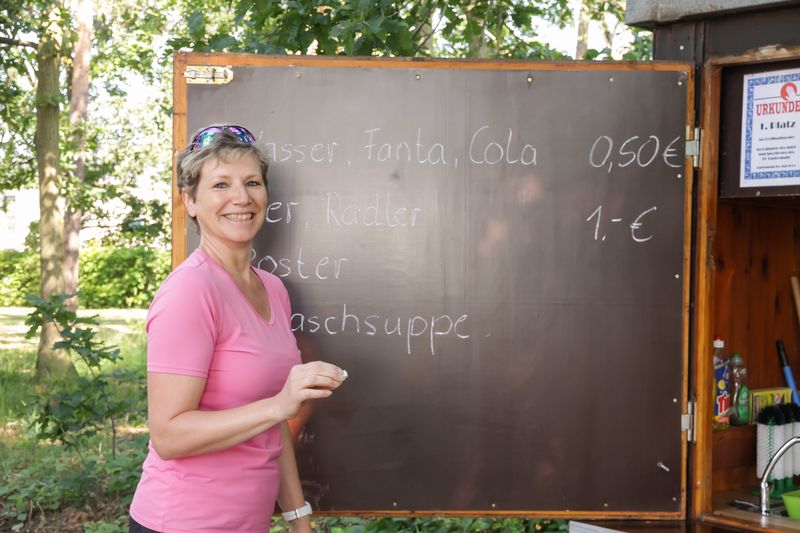 asser Fanta, Cola 0,50€
er, Radler 1,-€
Roster
aschsuppe
URKUNDE
1. Platz